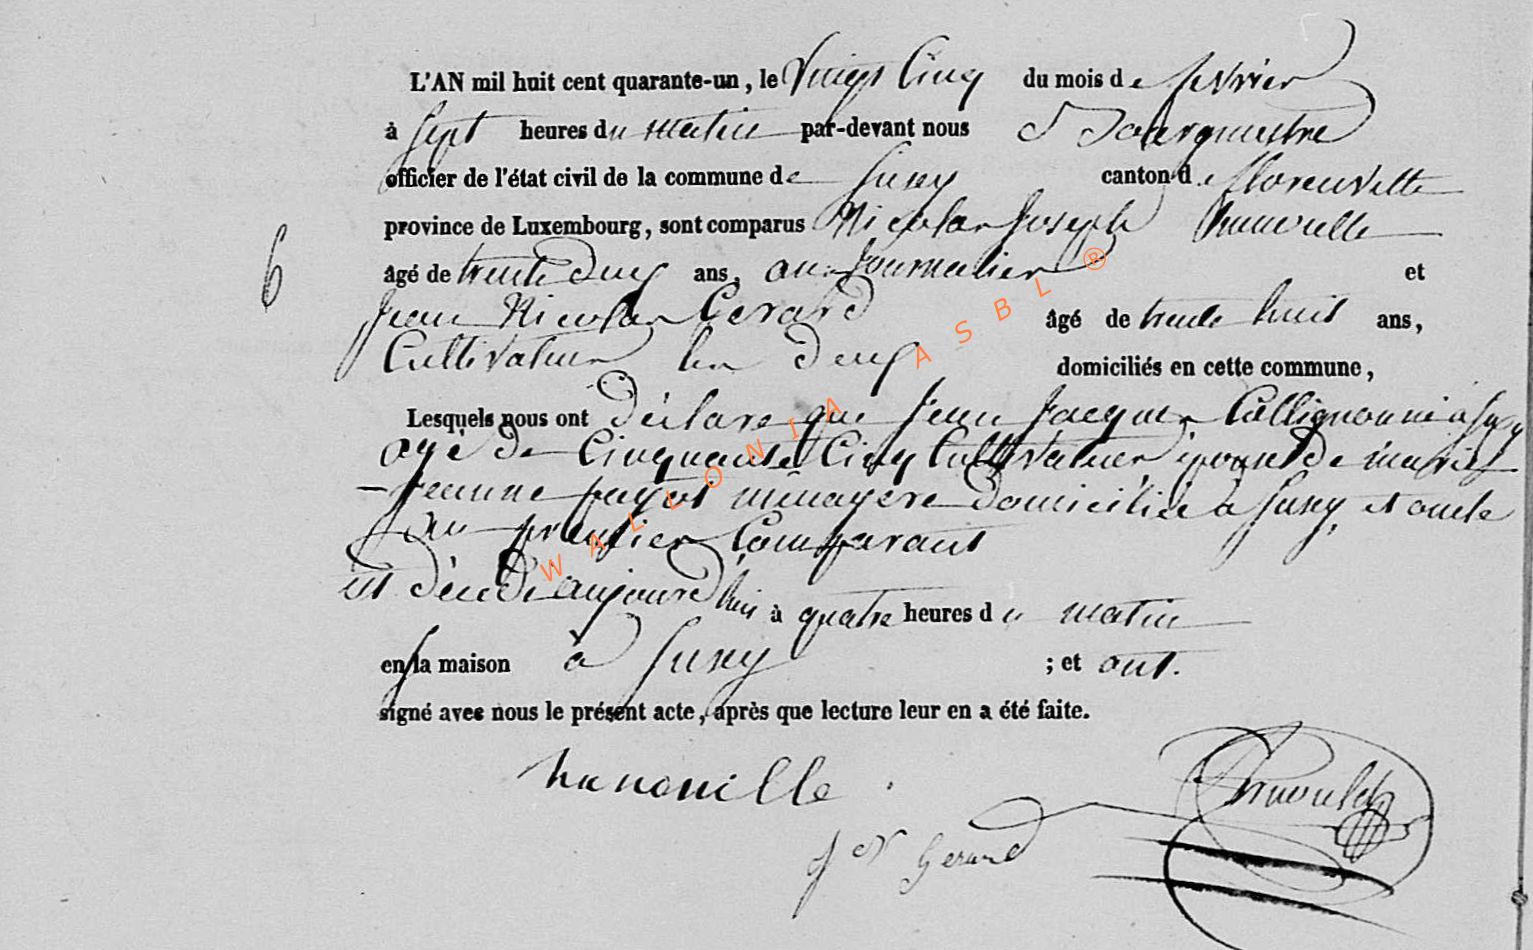 L'AN mil huit cent quarante-un, le Vingt Cinq du mois de fevrier
à Sept heures du matin par-devant nous
officier de l'état civil de la commune de Suxy canton de florenville
province de Luxembourg, sont comparus Nicolas Joseph hanouille
6
âgé de trente deux ans, journalier et
Jean Nicolas Gerard âgé de trente huit ans,
Cultivateur les deux domiciliés en cette commune,
Lesquels nous ont déclaré que Jean Jacques Collignon né a Suxy
agé de Cinquante Cinq Cultivateur époux de marie
jeanne payot ménagere domiciliée a Suxy et oncle
au premier Comparant
est décédé aujourd'huis à quatre heures du matin
en sa maison à Suxy ; et ont.
signé avec nous le présent acte, après que lecture leur en a été faite.
hanouille
j N Gerard
WALLONIA ASBL ®